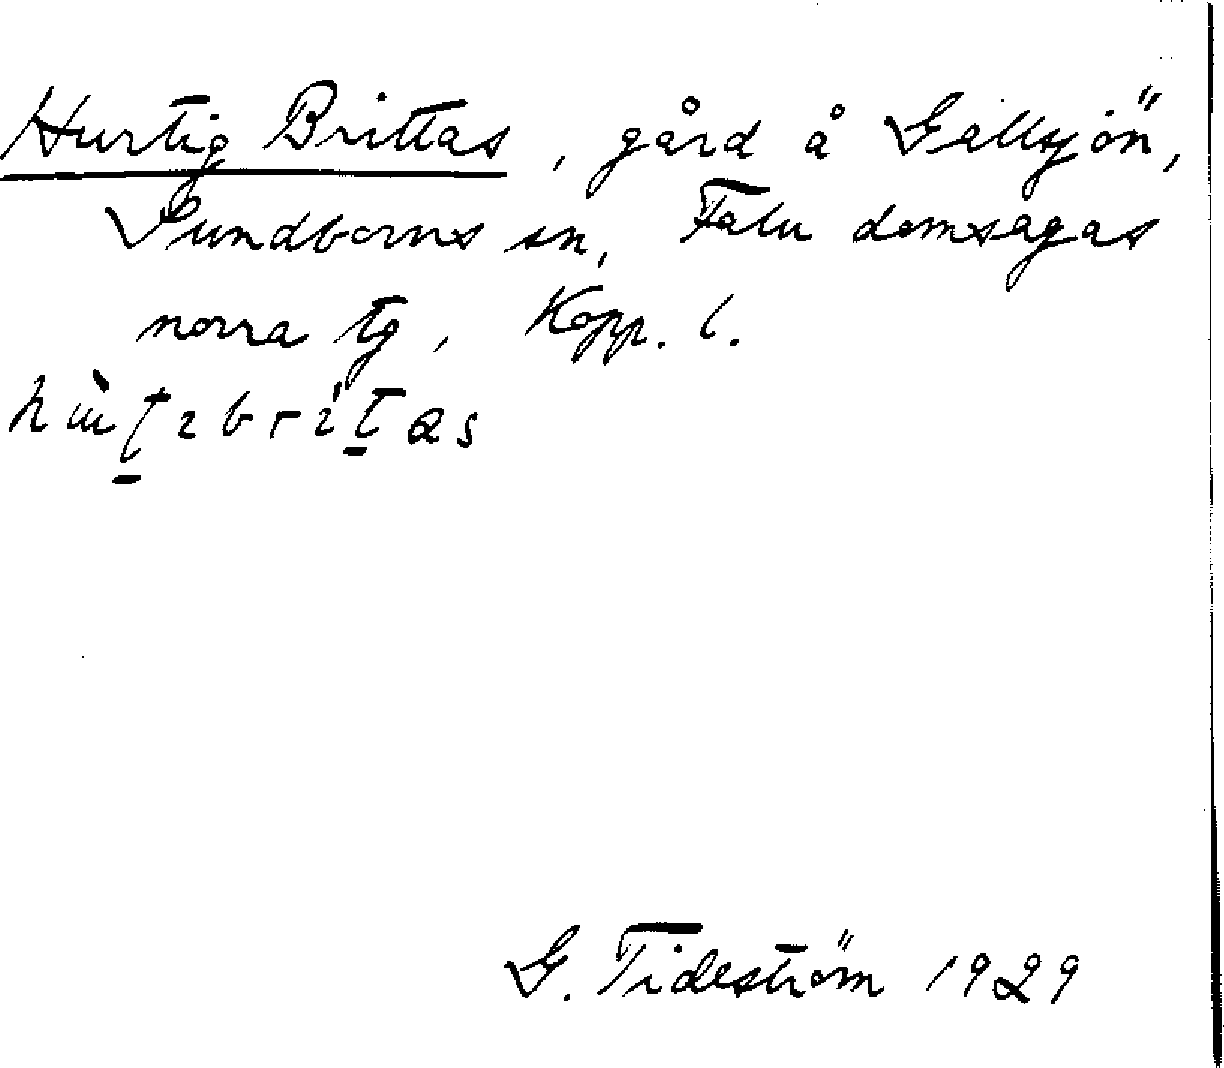 Hurtig Brittas, gård å Gallsjön,
Sundborns sn, Falu domsagas
norra tg, Kopp. l.
G. Tideström 1929